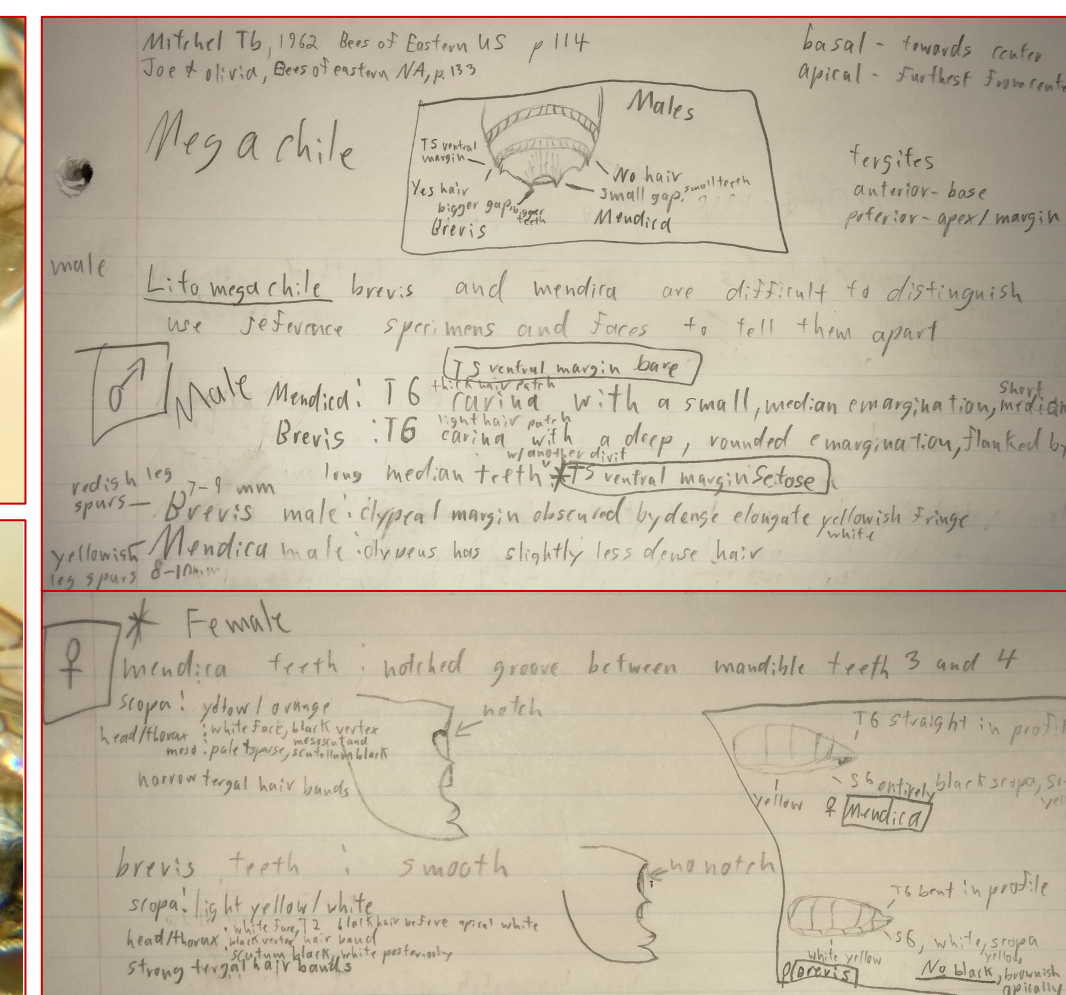 Mitchel Tb, 1962 Bees of Eastern US p 114
Joe & olivia, Bees of eastern NA, p. 133
basal - towards center
apical - furthest from cent
Megachile
Males
T5 ventral margin
Yes hair
bigger gap, bigger teeth
Brevis
No hair
small gap, small teeth
Mendica
tergites
anterior - base
poterior - apex/margin
male
Litomegachile brevis and mendica are difficult to distinguish
use reference specimens and faces to tell them apart
♂ Male
T5 ventral margin bare
thick hair patch
short
Mendica: T6 carina with a small, median emargination, median
light hair patch
Brevis: T6 carina with a deep, rounded emargination, flanked by
w/ another divit
long median teeth * T5 ventral margin Setose
redish leg spurs - 7-9 mm
Brevis male: clypeal margin obscured by dense elongate yellowish/white fringe
yellowish leg spurs 8-10mm
Mendica male: clypeus has slightly less dense hair
♀ * Female
mendica teeth: notched groove between mandible teeth 3 and 4
scopa: yellow/orange
notch
head/thorax: white face, black vertex
meso: pale & sparse, mesoscutum and scutellum black
narrow tergal hair bands
T6 straight in profil
S6 entirely black scopa,
yellow
♀ Mendica
brevis teeth: smooth
no notch
scopa: light yellow/white
head/thorax: white face, T2 black hair before apical white
black vertex, hair band
scutum black, white posteriorly
strong tergal hair bands
T6 bent in profile
S6, white, scopa
yellow
white yellow
No black, brownish
apically
♀ brevis